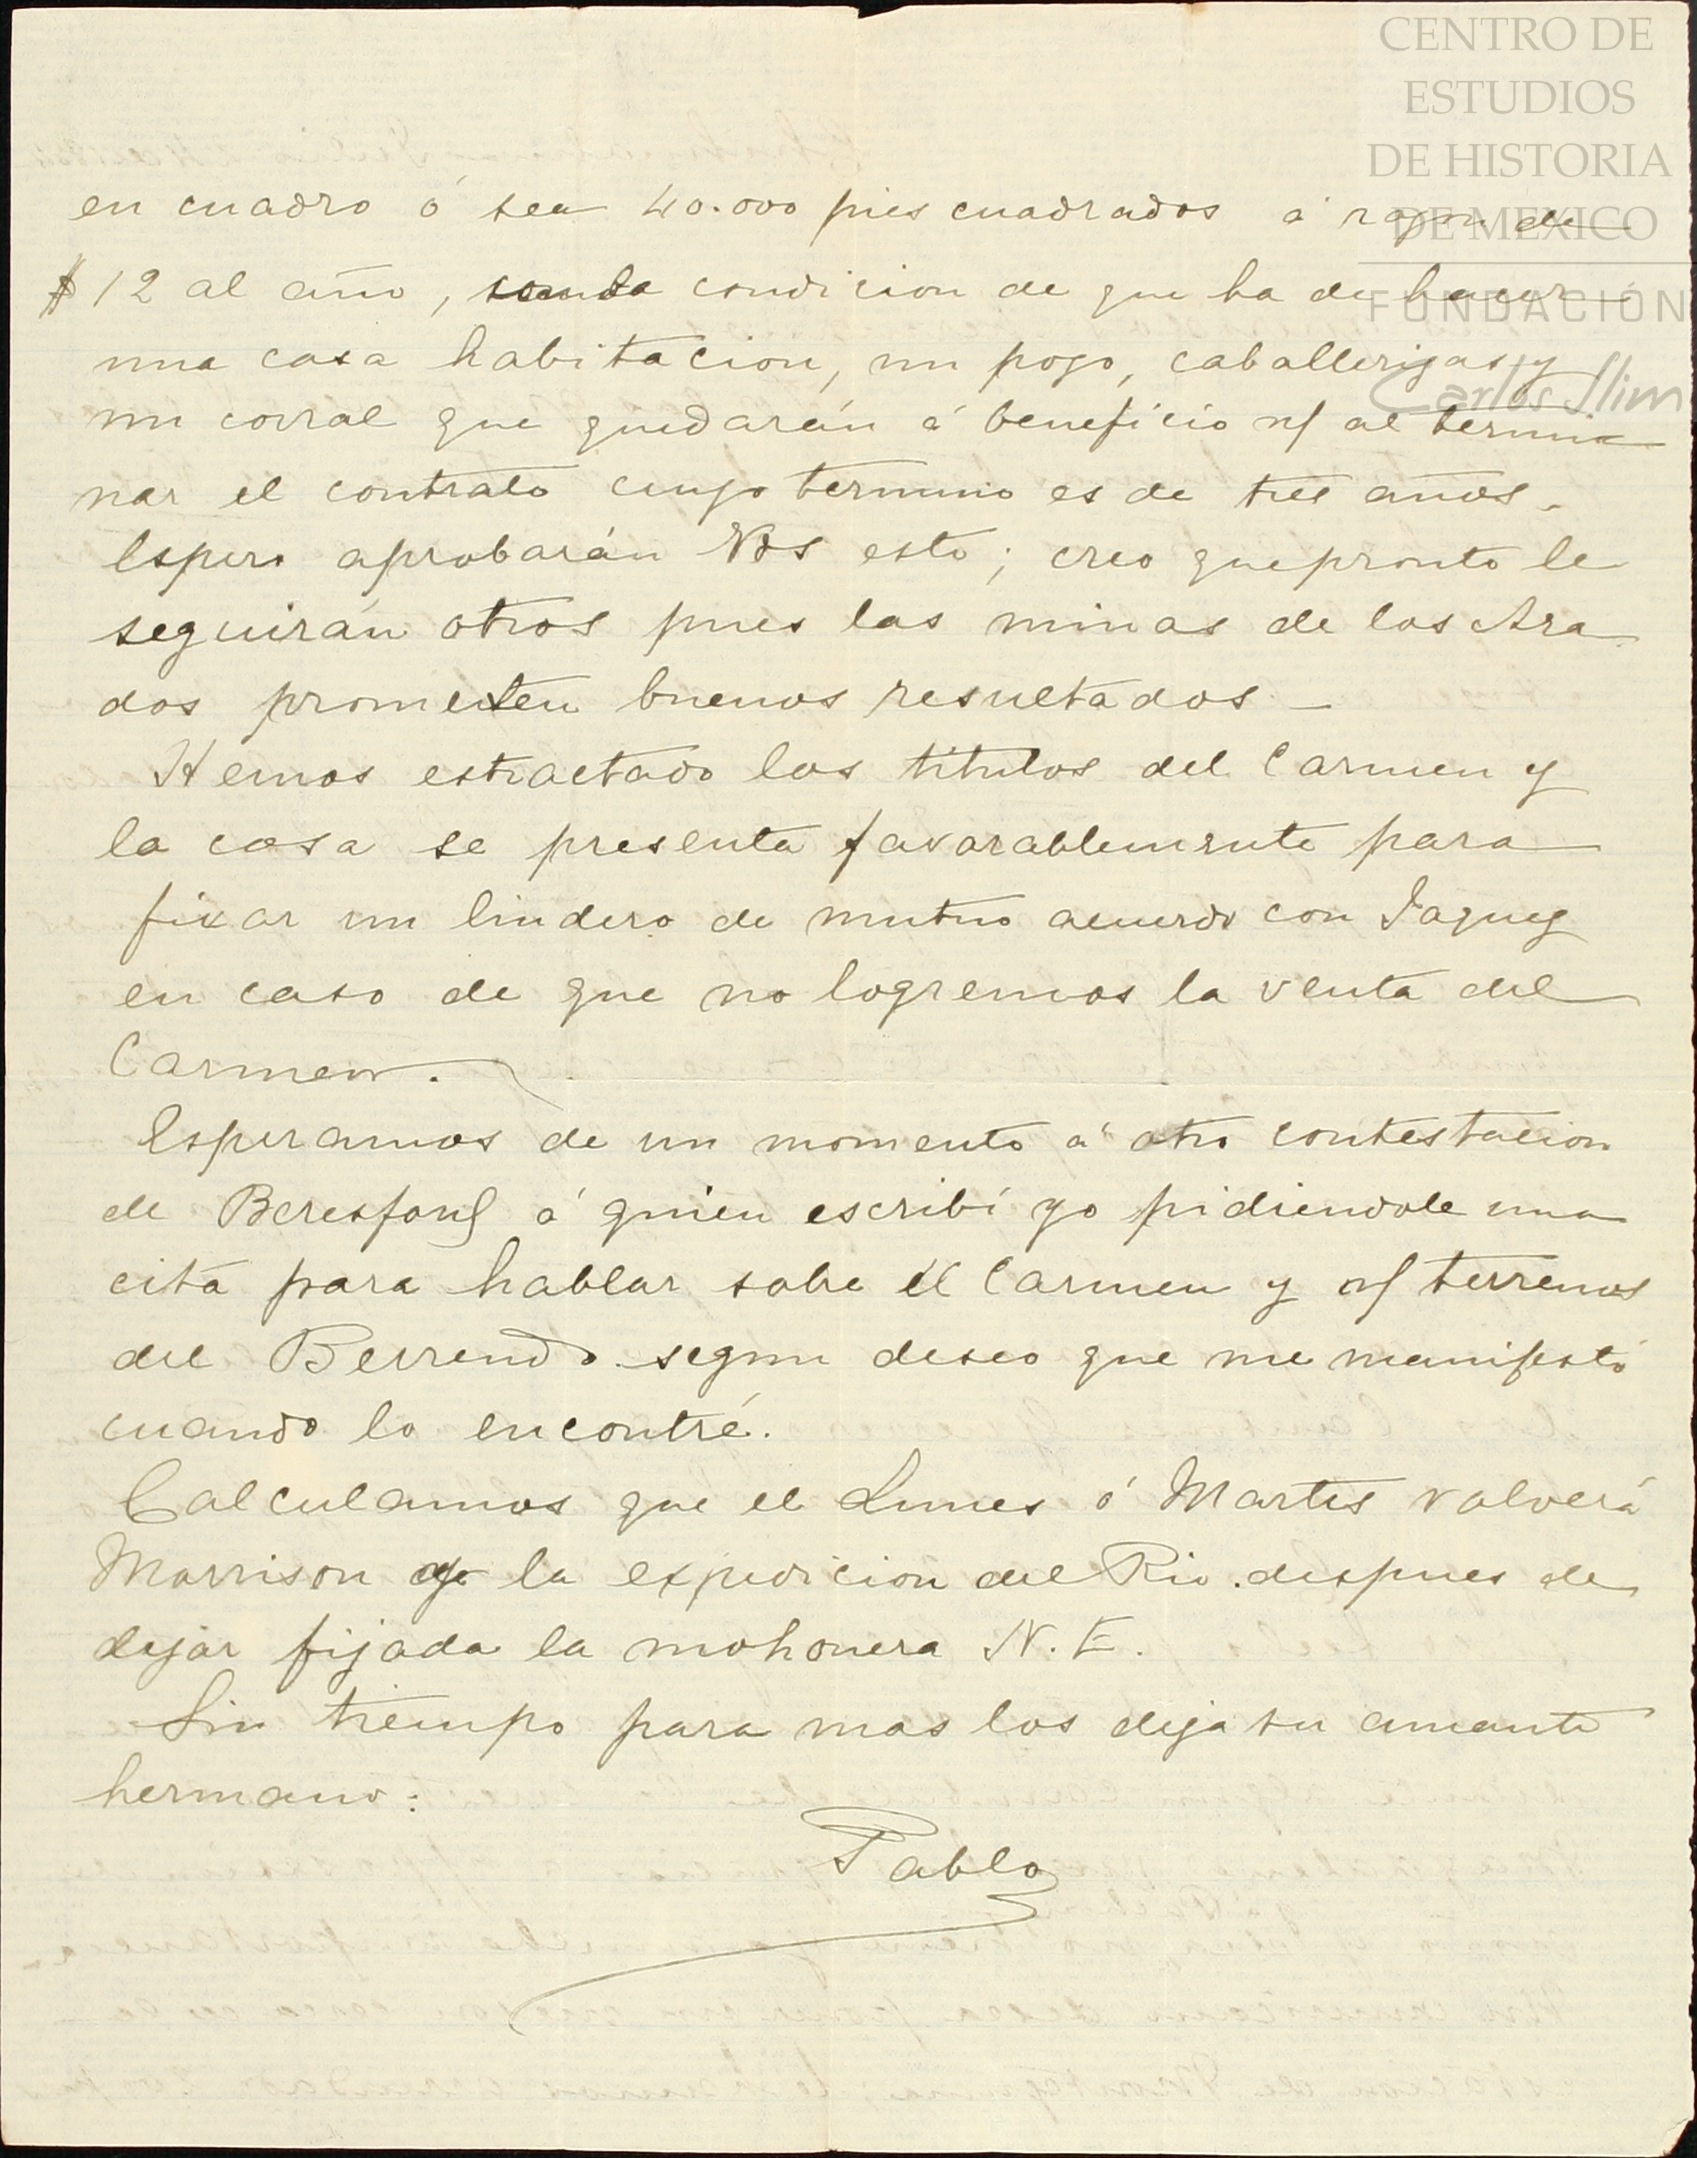 CENTRO DE
ESTUDIOS
DE HISTORIA
DE MEXICO
FUNDACIÓN
Carlos Slim
en cuadro ó sea 40.000 pies cuadrados á razon de
$12 al año, condicion de que ha de hacer
una casa habitacion, un pozo, caballerizas y
un corral que quedarán á beneficio n/ al termi
nar el contrato cuyo termino es de tres años.
Espero aprobarán Vds esto; creo que pronto le
seguirán otros pues las minas de los Ara
dos prometen buenos resultados –
Hemos estractado los títulos del Carmen y
la cosa se presenta favorablemente para
fixar un lindero de mutuo acuerdo con Jaquez
en caso de que no logremos la venta del
Carmen.
Esperamos de un momento á otro contestacion
de á quien escribí yo pidiendole una
cita para hablar sobre el Carmen y n/ terrenos
del Berrendo segun deseo que me manifestó
cuando lo encontré.
Calculamos que el Lunes ó Martes volverá
Morrison de la expedicion del Rio despues de
dejar fijada la mohonera N.E.
Sin tiempo para mas los deja su amante
hermano:
Pablo